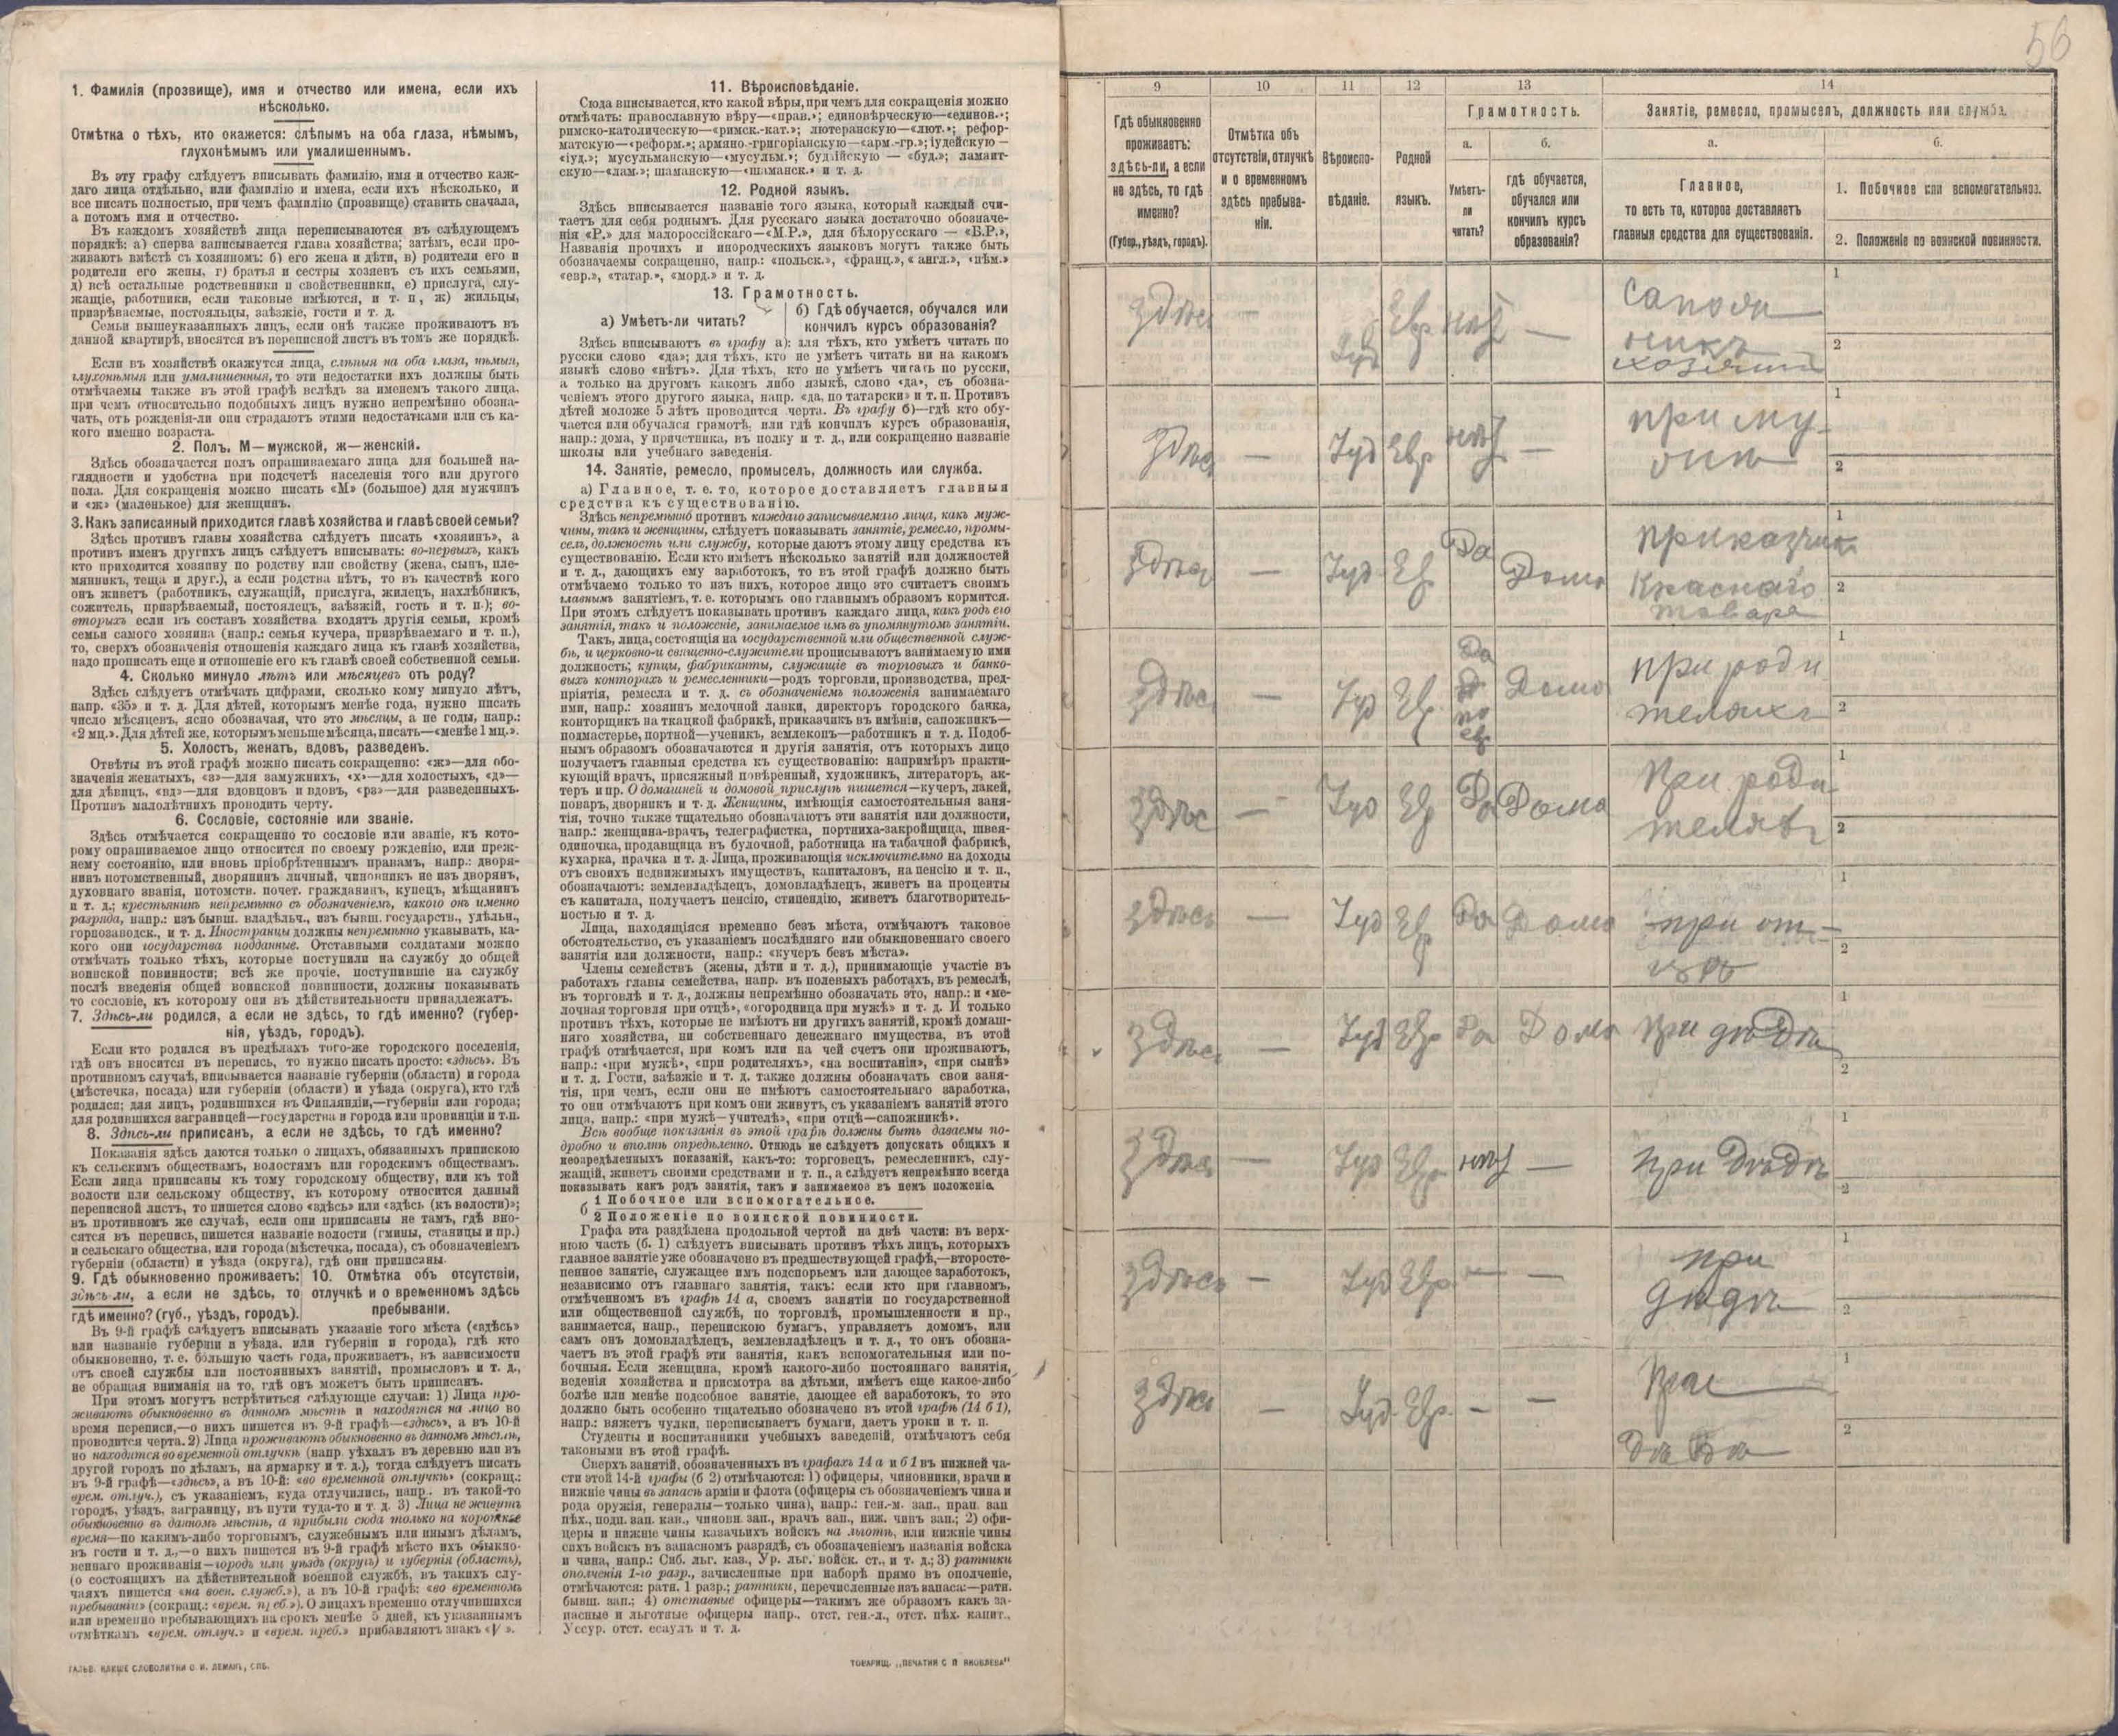 1. Фамилія (прозвище), имя и отчество или имена, если ихъ
нѣсколько.
Отмѣтка о тѣхъ, кто окажется: слѣпымъ на оба глаза, нѣмымъ,
глухонѣмымъ или умалишеннымъ.
Въ эту графу слѣдуетъ вписывать фамилію, имя и отчество каж-
даго лица отдѣльно, или фамилію и имена, если ихъ нѣсколько, и
все писать полностью, при чемъ фамилію (прозвище) ставить сначала,
а потомъ имя и отчество.
Въ каждомъ хозяйствѣ лица переписываются въ слѣдующемъ
порядкѣ: а) сперва записывается глава хозяйства; затѣмъ, если про-
живаютъ вмѣстѣ съ хозяиномъ: б) его жена и дѣти, в) родители его и
родители его жены, г) братья и сестры хозяевъ съ ихъ семьями,
д) всѣ остальные родственники и свойственники, е) прислуга, слу-
жащіе, работники, если таковые имѣются, и т. п, ж) жильцы,
призрѣваемые, постояльцы, заѣзжіе, гости и т. д.
Семьи вышеуказанныхъ лицъ, если онѣ также проживаютъ въ
данной квартирѣ, вносятся въ переписной листъ въ томъ же порядкѣ.
Если въ хозяйствѣ окажутся лица, слѣпыя на оба глаза, нѣмыя,
глухонѣмыя или умалишенныя, то эти недостатки ихъ должны быть
отмѣчаемы также въ этой графѣ вслѣдъ за именемъ такого лица,
при чемъ относительно подобныхъ лицъ нужно непремѣнно обозна-
чать, отъ рожденія-ли они страдаютъ этими недостатками или съ ка-
кого именно возраста.
2. Полъ, М—мужской, ж—женскій.
Здѣсь обозначается полъ опрашиваемаго лица для большей на-
глядности и удобства при подсчетѣ населенія того или другого
пола. Для сокращенія можно писать «М» (большое) для мужчинъ
и «ж» (маленькое) для женщинъ.
3. Какъ записанный приходится главѣ хозяйства и главѣ своей семьи?
Здѣсь противъ главы хозяйства слѣдуетъ писать «хозяинъ», а
противъ именъ другихъ лицъ слѣдуетъ вписывать: во-первыхъ, какъ
кто приходится хозяину по родству или свойству (жена, сынъ, пле-
мянникъ, теща и друг.), а если родства нѣтъ, то въ качествѣ кого
онъ живетъ (работникъ, служащій, прислуга, жилецъ, нахлѣбникъ,
сожитель, призрѣваемый, постоялецъ, заѣзжій, гость и т. п.); во-
вторыхъ если въ составъ хозяйства входятъ другія семьи, кромѣ
семьи самого хозяина (напр.: семья кучера, призрѣваемаго и т. п.),
то, сверхъ обозначенія отношенія каждаго лица къ главѣ хозяйства,
надо прописать еще и отношеніе его къ главѣ своей собственной семьи.
4. Сколько минуло лѣтъ или мѣсяцевъ отъ роду?
Здѣсь слѣдуетъ отмѣчать цифрами, сколько кому минуло лѣтъ,
напр. «35» и т. д. Для дѣтей, которымъ менѣе года, нужно писать
число мѣсяцевъ, ясно обозначая, что это мѣсяцы, а не годы, напр.:
«2 мц.». Для дѣтей же, которымъ меньше мѣсяца, писать—«менѣе 1 мц.».
5. Холостъ, женатъ, вдовъ, разведенъ.
Отвѣты въ этой графѣ можно писать сокращенно: «ж»—для обо-
значенія женатыхъ, «з»—для замужнихъ, «х»—для холостыхъ, «д»—
для дѣвицъ, «вд»—для вдовцовъ и вдовъ, «рз»—для разведенныхъ.
Противъ малолѣтнихъ проводить черту.
6. Сословіе, состояніе или званіе.
Здѣсь отмѣчается сокращенно то сословіе или званіе, къ кото-
рому опрашиваемое лицо относится по своему рожденію, или преж-
нему состоянію, или вновь пріобрѣтеннымъ правамъ, напр.: дворя-
нинъ потомственный, дворянинъ личный, чиновникъ не изъ дворянъ,
духовнаго званія, потомств. почет. гражданинъ, купецъ, мѣщанинъ
и т. д.; крестьянинъ непремѣнно съ обозначеніемъ, какого онъ именно
разряда, напр.: изъ бывш. владѣльч., изъ бывш. государств., удѣльн.,
горнозаводск., и т. д. Иностранцы должны непремѣнно указывать, ка-
кого они государства подданные. Отставными солдатами можно
отмѣчать только тѣхъ, которые поступили на службу до общей
воинской повинности; всѣ же прочіе, поступившіе на службу
послѣ введенія общей воинской повинности, должны показывать
то сословіе, къ которому они въ дѣйствительности принадлежатъ.
7. Здѣсь-ли родился, а если не здѣсь, то гдѣ именно? (губер-
нія, уѣздъ, городъ).
Если кто родился въ предѣлахъ того-же городского поселенія,
гдѣ онъ вносится въ перепись, то нужно писать просто: «здѣсь». Въ
противномъ случаѣ, вписывается названіе губерніи (области) и города
(мѣстечка, посада) или губерніи (области) и уѣзда (округа), кто гдѣ
родился; для лицъ, родившихся въ Финляндіи,—губерніи или города;
для родившихся заграницей—государства и города или провинціи и т.п.
8. Здѣсь-ли приписанъ, а если не здѣсь, то гдѣ именно?
Показанія здѣсь даются только о лицахъ, обязанныхъ припискою
къ сельскимъ обществамъ, волостямъ или городскимъ обществамъ.
Если лица приписаны къ тому городскому обществу, или къ той
волости или сельскому обществу, къ которому относится данный
переписной листъ, то пишется слово «здѣсь» или «здѣсь (къ волости)»;
въ противномъ же случаѣ, если они приписаны не тамъ, гдѣ вно-
сятся въ перепись, пишется названіе волости (гмины, станицы и пр.)
и сельскаго общества, или города (мѣстечка, посада), съ обозначеніемъ
губерніи (области) и уѣзда (округа), гдѣ они приписаны.
9. Гдѣ обыкновенно проживаетъ:
здѣсь ли, а если не здѣсь, то
гдѣ именно? (губ., уѣздъ, городъ).
10. Отмѣтка объ отсутствіи,
отлучкѣ и о временномъ здѣсь
пребываніи.
Въ 9-й графѣ слѣдуетъ вписывать указаніе того мѣста («здѣсь»
или названіе губерніи и уѣзда, или губерніи и города), гдѣ кто
обыкновенно, т. е. большую часть года, проживаетъ, въ зависимости
отъ своей службы или постоянныхъ занятій, промысловъ и т. д.,
не обращая вниманія на то, гдѣ онъ можетъ быть приписанъ.
При этомъ могутъ встрѣтиться слѣдующіе случаи: 1) Лица про-
живаютъ обыкновенно въ данномъ мѣстѣ и находятся на лицо во
время переписи,—о нихъ пишется въ 9-й графѣ—«здѣсь», а въ 10-й
проводится черта. 2) Лица проживаютъ обыкновенно въ данномъ мѣстѣ,
но находятся во временной отлучкѣ (напр. уѣхалъ въ деревню или въ
другой городъ по дѣламъ, на ярмарку и т. д.), тогда слѣдуетъ писать
въ 9-й графѣ—«здѣсь», а въ 10-й: «во временной отлучкѣ» (сокращ.:
врем. отлуч.), съ указаніемъ, куда отлучились, напр. въ такой-то
городъ, уѣздъ, заграницу, въ пути туда-то и т. д. 3) Лица не живутъ
обыкновенно въ данномъ мѣстѣ, а прибыли сюда только на короткое
время—по какимъ-либо торговымъ, служебнымъ или инымъ дѣламъ,
въ гости и т. д.,—о нихъ пишется въ 9-й графѣ мѣсто ихъ обыкно-
веннаго проживанія—городъ или уѣздъ (округъ) и губернія (область),
(о состоящихъ на дѣйствительной военной службѣ, въ такихъ слу-
чаяхъ пишется «на воен. служб.»), а въ 10-й графѣ: «во временномъ
пребываніи» (сокращ.: «врем. преб.»). О лицахъ временно отлучившихся
или временно пребывающихъ на срокъ менѣе 5 дней, къ указаннымъ
отмѣткамъ «врем. отлуч.» и «врем. преб.» прибавляютъ знакъ «V».
ГАЛЬВ. КЛИШЕ СЛОВОЛИТНИ О. И. ЛЕМАНЪ, СПБ.
11. Вѣроисповѣданіе.
Сюда вписывается, кто какой вѣры, при чемъ для сокращенія можно
отмѣчать: православную вѣру—«прав.»; единовѣрческую—«единов.»;
римско-католическую—«римск.-кат.»; лютеранскую—«лют.»; рефор-
матскую—«реформ.»; армяно.-григоріанскую—«арм.-гр.»; іудейскую—
«іуд.»; мусульманскую—«мусульм.»; буддійскую — «буд.»; ламаит-
скую—«лам.»; шаманскую—«шаманск.» и т. д.
12. Родной языкъ.
Здѣсь вписывается названіе того языка, который каждый счи-
таетъ для себя роднымъ. Для русскаго языка достаточно обозначе-
нія «Р.» для малороссійскаго—«М.Р.», для бѣлорусскаго — «Б.Р.»,
Названія прочихъ и инородческихъ языковъ могутъ также быть
обозначаемы сокращенно, напр.: «польск.», «франц.», «англ.», «нѣм.»
«евр.», «татар.», «морд.» и т. д.
13. Грамотность.
а) Умѣетъ-ли читать?
б) Гдѣ обучается, обучался или
кончилъ курсъ образованія?
Здѣсь вписываютъ въ графу а): для тѣхъ, кто умѣетъ читать по
русски слово «да»; для тѣхъ, кто не умѣетъ читать ни на какомъ
языкѣ слово «нѣтъ». Для тѣхъ, кто не умѣетъ читать по русски,
а только на другомъ какомъ либо языкѣ, слово «да», съ обозна-
ченіемъ этого другого языка, напр. «да, по татарски» и т. п. Противъ
дѣтей моложе 5 лѣтъ проводится черта. Въ графу б)—гдѣ кто обу-
чается или обучался грамотѣ, или гдѣ кончилъ курсъ образованія,
напр.: дома, у причетника, въ полку и т. д., или сокращенно названіе
школы или учебнаго заведенія.
14. Занятіе, ремесло, промыселъ, должность или служба.
а) Главное, т. е. то, которое доставляетъ главныя
средства къ существованію.
Здѣсь непремѣнно противъ каждаго записываемаго лица, какъ муж-
чины, такъ и женщины, слѣдуетъ показывать занятіе, ремесло, промы-
селъ, должность или службу, которые даютъ этому лицу средства къ
существованію. Если кто имѣетъ нѣсколько занятій или должностей
и т. д., дающихъ ему заработокъ, то въ этой графѣ должно быть
отмѣчаемо только то изъ нихъ, которое лицо это считаетъ своимъ
главнымъ занятіемъ, т. е. которымъ оно главнымъ образомъ кормится.
При этомъ слѣдуетъ показывать противъ каждаго лица, какъ родъ его
занятія, такъ и положеніе, занимаемое имъ въ упомянутомъ занятіи.
Такъ, лица, состоящія на государственной или общественной служ-
бѣ, и церковно-и священно-служители прописываютъ занимаемую ими
должность; купцы, фабриканты, служащіе въ торговыхъ и банко-
выхъ конторахъ и ремесленники—родъ торговли, производства, пред-
пріятія, ремесла и т. д. съ обозначеніемъ положенія занимаемаго
ими, напр.: хозяинъ мелочной лавки, директоръ городского банка,
конторщикъ на ткацкой фабрикѣ, приказчикъ въ имѣніи, сапожникъ—
подмастерье, портной—ученикъ, землекопъ—работникъ и т. д. Подоб-
нымъ образомъ обозначаются и другія занятія, отъ которыхъ лицо
получаетъ главныя средства къ существованію: напримѣръ практи-
кующій врачъ, присяжный повѣренный, художникъ, литераторъ, ак-
теръ и пр. О домашней и домовой прислугѣ пишется—кучеръ, лакей,
поваръ, дворникъ и т. д. Женщины, имѣющія самостоятельныя заня-
тія, точно также тщательно обозначаютъ эти занятія или должности,
напр.: женщина-врачъ, телеграфистка, портниха-закройщица, швея-
одиночка, продавщица въ булочной, работница на табачной фабрикѣ,
кухарка, прачка и т. д. Лица, проживающія исключительно на доходы
отъ своихъ недвижимыхъ имуществъ, капиталовъ, на пенсію и т. п.,
обозначаютъ: землевладѣлецъ, домовладѣлецъ, живетъ на проценты
съ капитала, получаетъ пенсію, стипендію, живетъ благотворитель-
ностью и т. д.
Лица, находящіяся временно безъ мѣста, отмѣчаютъ таковое
обстоятельство, съ указаніемъ послѣдняго или обыкновеннаго своего
занятія или должности, напр.: «кучеръ безъ мѣста».
Члены семействъ (жены, дѣти и т. д.), принимающіе участіе въ
работахъ главы семейства, напр. въ полевыхъ работахъ, въ ремеслѣ,
въ торговлѣ и т. д., должны непремѣнно обозначать это, напр.: и «ме-
лочная торговля при отцѣ», «огородница при мужѣ» и т. д. И только
противъ тѣхъ, которые не имѣютъ ни другихъ занятій, кромѣ домаш-
няго хозяйства, ни собственнаго денежнаго имущества, въ этой
графѣ отмѣчается, при комъ или на чей счетъ они проживаютъ,
напр.: «при мужѣ», «при родителяхъ», «на воспитаніи», «при сынѣ»
и т. д. Гости, заѣзжіе и т. д. также должны обозначать свои заня-
тія, при чемъ, если они не имѣютъ самостоятельнаго заработка,
то они отмѣчаютъ при комъ они живутъ, съ указаніемъ занятій этого
лица, напр.: «при мужѣ—учителѣ», «при отцѣ—сапожникѣ».
Всѣ вообще показанія въ этой графѣ должны быть даваемы по-
дробно и вполнѣ опредѣленно. Отнюдь не слѣдуетъ допускать общихъ и
неопредѣленныхъ показаній, какъ-то: торговецъ, ремесленникъ, слу-
жащій, живетъ своими средствами и т. п., а слѣдуетъ непремѣнно всегда
показывать какъ родъ занятія, такъ и занимаемое въ немъ положеніе.
б 1 Побочное или вспомогательное.
2 Положеніе по воинской повинности.
Графа эта раздѣлена продольной чертой на двѣ части: въ верх-
нюю часть (б. 1) слѣдуетъ вписывать противъ тѣхъ лицъ, которыхъ
главное занятіе уже обозначено въ предшествующей графѣ,—второсте-
пенное занятіе, служащее имъ подспорьемъ или дающее заработокъ,
независимо отъ главнаго занятія, такъ: если кто при главномъ,
отмѣченномъ въ графѣ 14 а, своемъ занятіи по государственной
или общественной службѣ, по торговлѣ, промышленности и пр.,
занимается, напр., перепискою бумагъ, управляетъ домомъ, или
самъ онъ домовладѣлецъ, землевладѣлецъ и т. д., то онъ обозна-
чаетъ въ этой графѣ эти занятія, какъ вспомогательныя или по-
бочныя. Если женщина, кромѣ какого-либо постояннаго занятія,
веденія хозяйства и присмотра за дѣтьми, имѣетъ еще какое-либо
болѣе или менѣе подсобное занятіе, дающее ей заработокъ, то это
должно быть особенно тщательно обозначено въ этой графѣ (14 б 1),
напр.: вяжетъ чулки, переписываетъ бумаги, даетъ уроки и т. п.
Студенты и воспитанники учебныхъ заведеній, отмѣчаютъ себя
таковыми въ этой графѣ.
Сверхъ занятій, обозначенныхъ въ графахъ 14 а и б 1 въ нижней ча-
сти этой 14-й графы (б 2) отмѣчаются: 1) офицеры, чиновники, врачи и
нижніе чины въ запасѣ арміи и флота (офицеры съ обозначеніемъ чина и
рода оружія, генералы—только чина), напр.: ген.-м. зап., прап. зап
пѣх., подп. зап. кав., чиновн. зап., врачъ зап., ниж. чинъ зап.; 2) офи-
церы и нижніе чины казачьихъ войскъ на льготѣ, или нижніе чины
сихъ войскъ въ запасномъ разрядѣ, съ обозначеніемъ названія войска
и чина, напр.: Сиб. льг. каз., Ур. льг. войск. ст., и т. д.; 3) ратники
ополченія 1-го разр., зачисленные при наборѣ прямо въ ополченіе,
отмѣчаются: ратн. 1 разр.; ратники, перечисленные изъ запаса:—ратн.
бывш. зап.; 4) отставные офицеры—такимъ же образомъ какъ за-
пасные и льготные офицеры напр., отст. ген.-л., отст. пѣх. капит.,
Уссур. отст. есаулъ и т. д.
ТОВАРИЩ. „ПЕЧАТНЯ С П ЯКОВЛЕВА"
56
9 10 11 12 13 14
Гдѣ обыкновенно
проживаетъ:
здѣсь-ли, а если
не здѣсь, то гдѣ
именно?
(Губер., уѣздъ, городъ).
Отмѣтка объ
отсутствіи, отлучкѣ
и о временномъ
здѣсь пребыва-
ніи.
Вѣроиспо-
вѣданіе.
Родной
языкъ.
Грамотность.
а.
Умѣетъ-
ли
читать?
б.
гдѣ обучается,
обучался или
кончилъ курсъ
образованія?
Занятіе, ремесло, промыселъ, должность или служба.
а.
Главное,
то есть то, которое доставляетъ
главныя средства для существованія.
б.
1. Побочное или вспомогательное.
2. Положеніе по воинской повинности.
здѣсь — Іуд Евр нѣт — сапож 1
никъ 2
хозяинъ
здѣсь — Іуд Евр нѣт — при му- 1
жѣ 2
здѣсь — Іуд Ев Да Дома приказчик 1
Краснаго 2
товара
здѣсь — Іуд Ев Да по ев Дома при роди 1
теляхъ 2
здѣсь — Іуд Ев Да Дома При роди 1
теляхъ 2
здѣсь — Іуд Ев Да Дома при от- 1
цѣ 2
здѣсь — Іуд Евр Да Дома при дѣдѣ 1
2
здѣсь — Іуд Евр нѣт — при дѣдѣ 1
2
здѣсь — Іуд Евр. — — при 1
дѣдѣ 2
здѣсь — Іуд. Евр. — — При 1
дѣдѣ 2